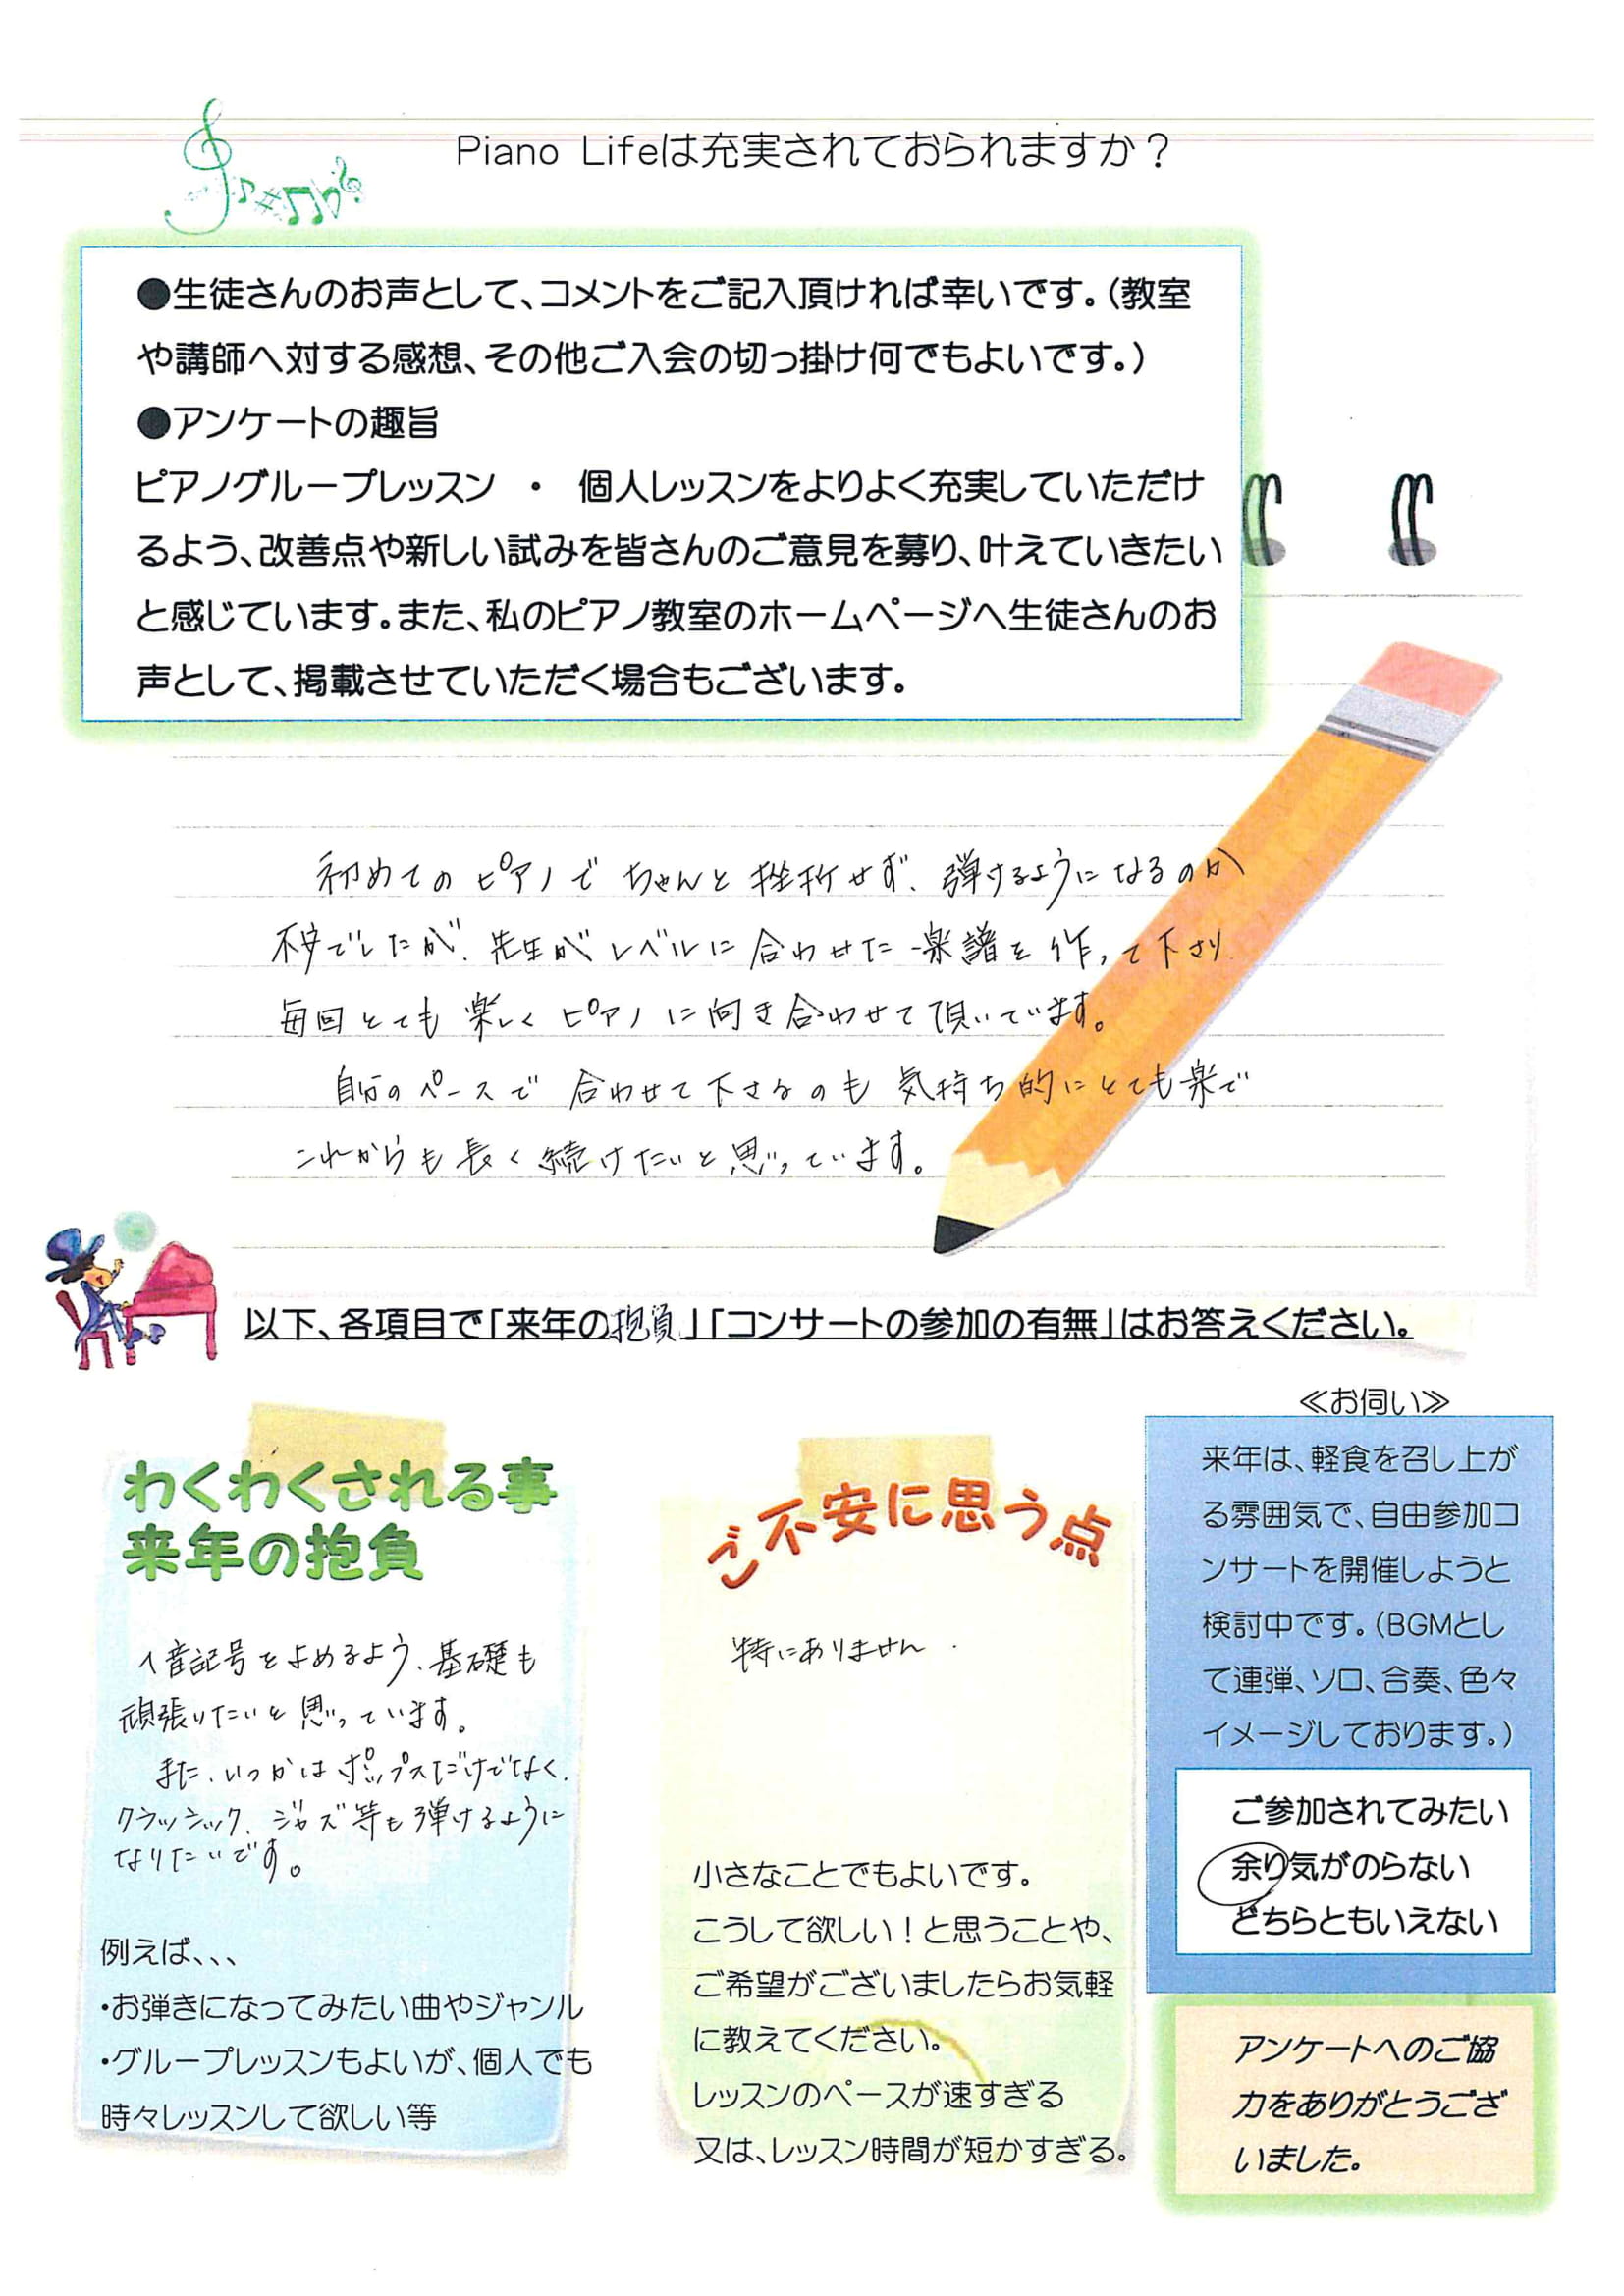 Piano Lifeは充実されておられますか？
●生徒さんのお声として、コメントをご記入頂ければ幸いです。（教室
や講師へ対する感想、その他ご入会の切っ掛け何でもよいです。）
●アンケートの趣旨
ピアノグループレッスン ・ 個人レッスンをよりよく充実していただけ
るよう、改善点や新しい試みを皆さんのご意見を募り、叶えていきたい
と感じています。また、私のピアノ教室のホームページへ生徒さんのお
声として、掲載させていただく場合もございます。
初めてのピアノでちゃんと挫折せず、弾けるようになるのか
不安でしたが、先生がレベルに合わせた楽譜を作って下さり
毎回とても楽しくピアノに向き合わせて頂いています。
自分のペースで合わせて下さるのも気持ち的にとても楽で
これからも長く続けたいと思っています。
以下、各項目で「来年の抱負」「コンサートの参加の有無」はお答えください。
わくわくされる事
来年の抱負
音記号をよめるよう、基礎も
頑張りたいと思っています。
また、いつかはポップスだけでなく、
クラッシック、ジャズ等も弾けるように
なりたいです。
例えば、、、
・お弾きになってみたい曲やジャンル
・グループレッスンもよいが、個人でも
時々レッスンして欲しい等
ご不安に思う点
特にありません
小さなことでもよいです。
こうして欲しい！と思うことや、
ご希望がございましたらお気軽
に教えてください。
レッスンのペースが速すぎる
又は、レッスン時間が短かすぎる。
≪お伺い≫
来年は、軽食を召し上が
る雰囲気で、自由参加コ
ンサートを開催しようと
検討中です。（BGMとし
て連弾、ソロ、合奏、色々
イメージしております。）
ご参加されてみたい
余り気がのらない
どちらともいえない
アンケートへのご協
力をありがとうござ
いました。